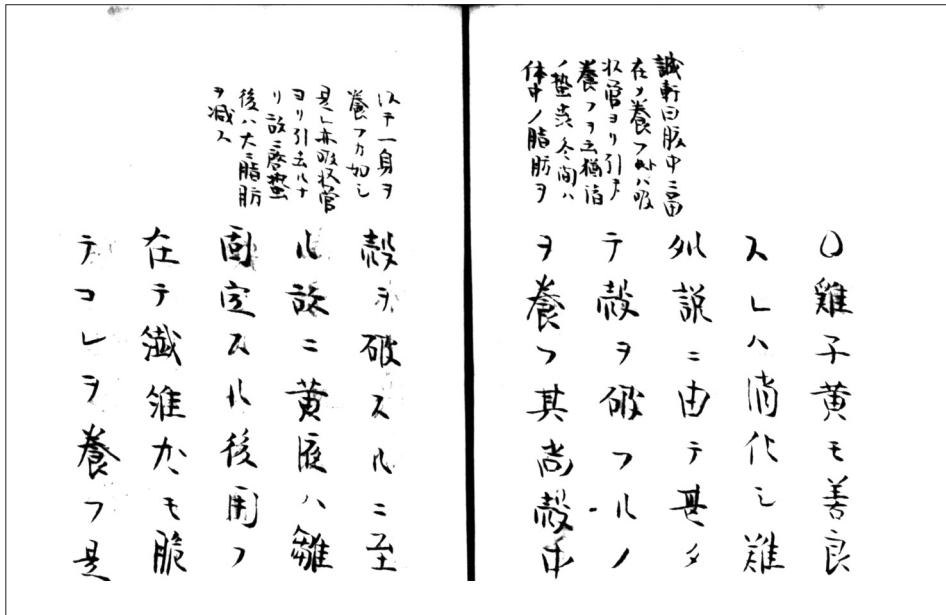 誠軒曰腹中ニ畜
在シ養フ処ハ吸
收管ヨリ引テ
養フヲ云猶諸
ノ蟄虫冬間ハ
体中ノ脂肪ヲ
○雞子黄モ善良
スレハ消化シ難
列説ニ由テ甚タ
テ殻ヲ破フルノ
ヲ養フ其尚殻中
以テ一身ヲ
養フカ如シ
是レ亦吸收管
ヨリ引去ルナ
リ故ニ啓蟄
後ハ大ニ脂肪
ヲ減ス
殻ヲ破スルニ至
ル故ニ黄液ハ雛
固定スル後フ
在テ繊維モ脆
テコレヲ養フ是